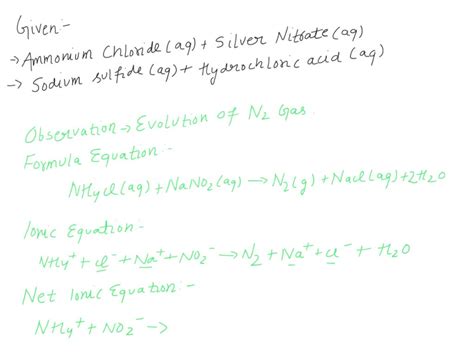 Given:-
→ Ammonium Chloride (aq) + Silver Nitrate (aq)
→ Sodium sulfide (aq) + Hydrochloric acid (aq)
Observation → Evolution of N₂ Gas.
Formula Equation:-
NH₄Cl(aq) + NaNO₂(aq) → N₂(g) + NaCl(aq) + 2H₂O
Ionic Equation:-
NH₄⁺ + Cl⁻ + Na⁺ + NO₂⁻ → N₂ + Na⁺ + Cl⁻ + H₂O
Net Ionic Equation:-
NH₄⁺ + NO₂⁻ →